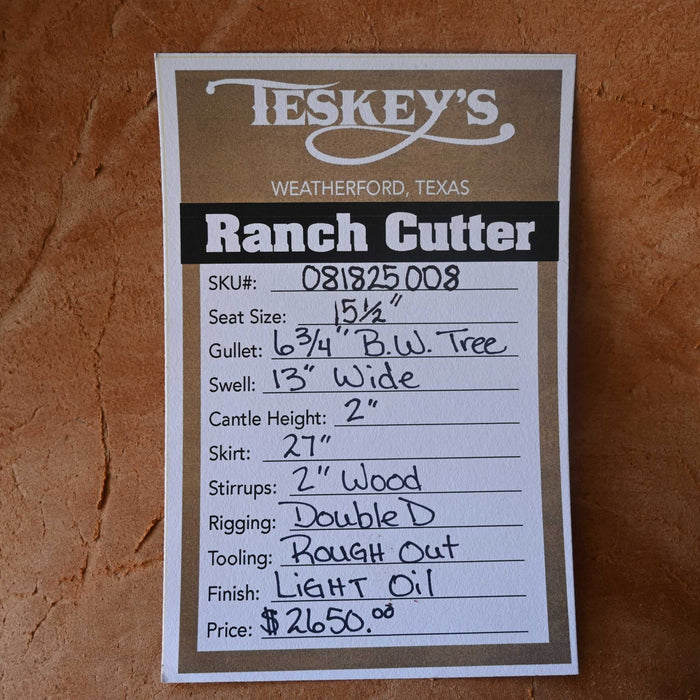 TESKEY'S
WEATHERFORD, TEXAS
Ranch Cutter
SKU#: 081825008
Seat Size: 15½"
Gullet: 6¾" B.W. Tree
Swell: 13" Wide
Cantle Height: 2"
Skirt: 27"
Stirrups: 2" Wood
Rigging: Double D
Tooling: ROUGH Out
Finish: LiGHT Oil
Price: $2650.00